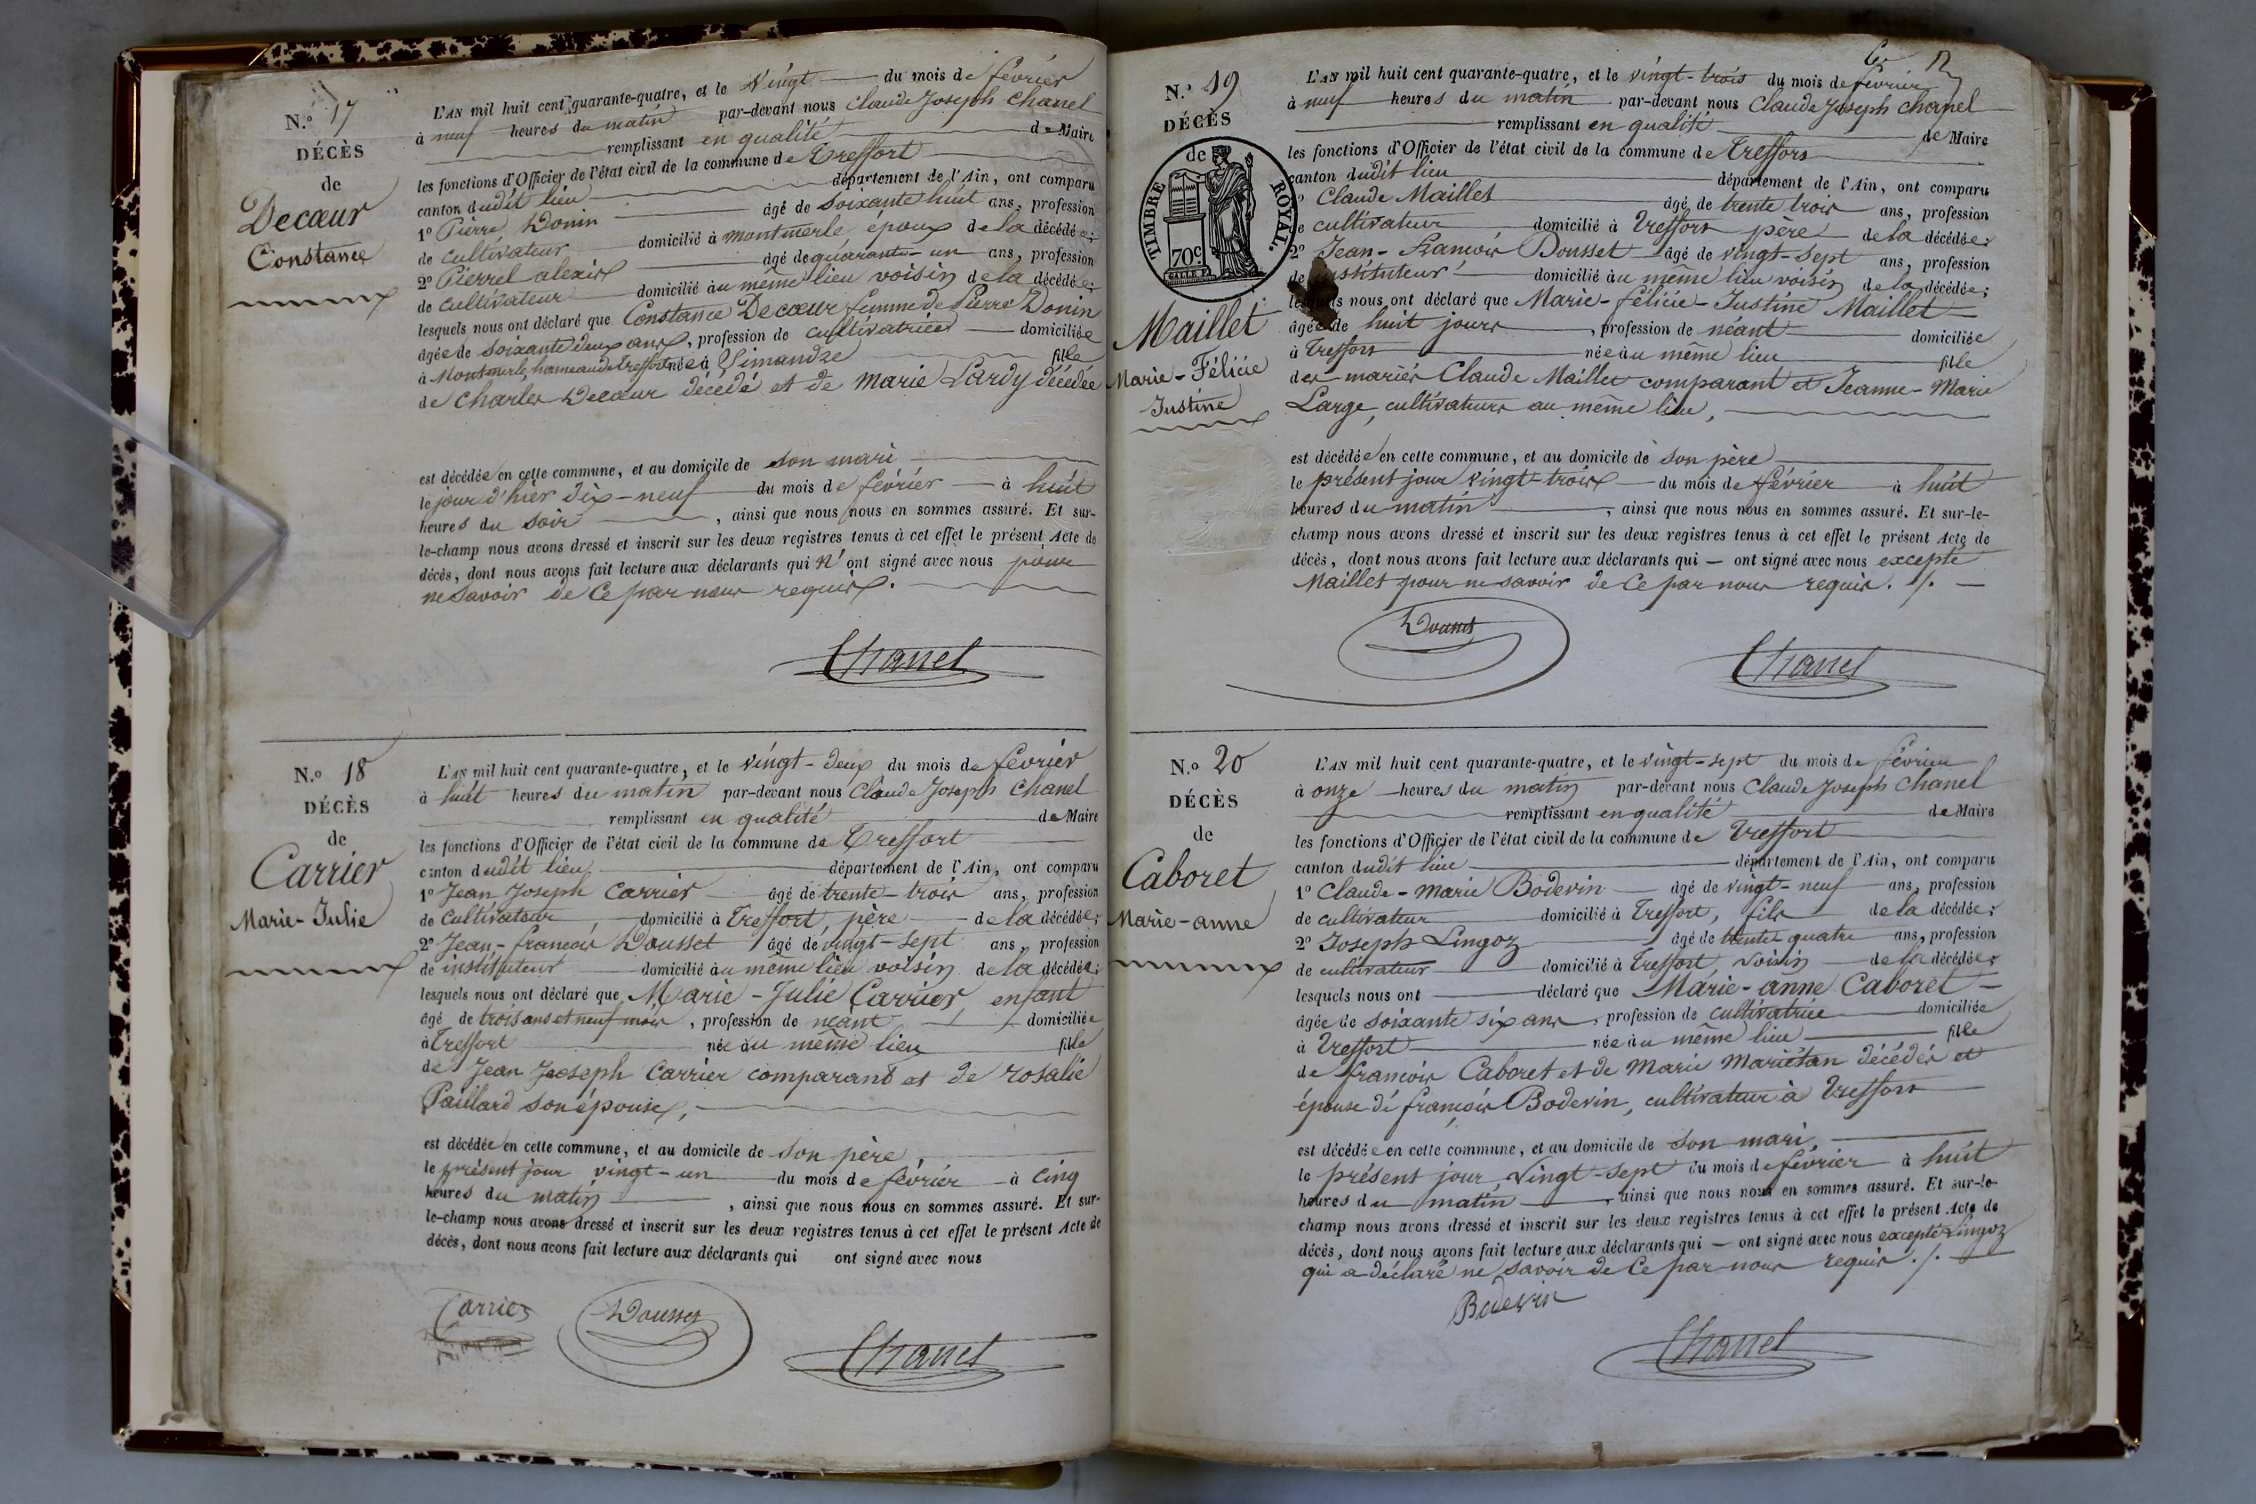 N.º 17
DÉCÈS
de
Decœur
Constance
L'AN mil huit cent quarante-quatre, et le vingt du mois de février
à neuf heures du matin par-devant nous Claude Joseph Chanel
remplissant en qualité de Maire
les fonctions d'Officier de l'état civil de la commune de Treffort
canton dudit lieu département de l'Ain, ont comparu
1º Pierre Donin âgé de soixante huit ans, profession
de cultivateur domicilié à montmerle époux de la décédée;
2º Pierrel alexis âgé de quarante-un ans, profession
de cultivateur domicilié au même lieu voisin de la décédée;
lesquels nous ont déclaré que Constance Decœur femme de Pierre Donin
âgée de soixante deux ans, profession de cultivatrice domiciliée
à Montmerle, hameau de Treffort née à Simandre fille
de Charles Decœur décédé et de marie Lardy décédée
est décédée en cette commune, et au domicile de son mari
le jour d'hier dix-neuf du mois de février à huit
heures du soir, ainsi que nous nous en sommes assuré. Et sur-
le-champ nous avons dressé et inscrit sur les deux registres tenus à cet effet le présent Acte de
décès, dont nous avons fait lecture aux déclarants qui n'ont signé avec nous pour
ne savoir de ce par nous requis.
Chanel
N.º 18
DÉCÈS
de
Carrier
Marie-Julie
L'AN mil huit cent quarante-quatre, et le vingt-deux du mois de février
à huit heures du matin par-devant nous Claude Joseph Chanel
remplissant en qualité de Maire
les fonctions d'Officier de l'état civil de la commune de Treffort
canton dudit lieu département de l'Ain, ont comparu
1º Jean Joseph Carrier âgé de trente-trois ans, profession
de cultivateur domicilié à Treffort, père de la décédée;
2º Jean-francois Dousset âgé de vingt-sept ans, profession
de instituteur domicilié au même lieu voisin de la décédée;
lesquels nous ont déclaré que Marie-Julie Carrier, enfant
âgé de trois ans et neuf mois, profession de néant domiciliée
à Treffort née au même lieu fille
de Jean Joseph Carrier comparant et de rosalie
Paillard son épouse,
est décédée en cette commune, et au domicile de son père,
le présent jour vingt-un du mois de février à cinq
heures du matin, ainsi que nous nous en sommes assuré. Et sur-
le-champ nous avons dressé et inscrit sur les deux registres tenus à cet effet le présent Acte de
décès, dont nous avons fait lecture aux déclarants qui ont signé avec nous
Carrier Dousset
Chanel
N.º 19
DÉCÈS
de
TIMBRE ROYAL.
70c
Maillet
Marie-Félicie
Justine
L'AN mil huit cent quarante-quatre, et le vingt-trois du mois de février
à neuf heures du matin par-devant nous Claude Joseph Chanel
remplissant en qualité de Maire
les fonctions d'Officier de l'état civil de la commune de Treffort
canton dudit lieu département de l'Ain, ont comparu
Claude Maillet âgé de trente trois ans, profession
de cultivateur domicilié à Treffort père de la décédée;
2º Jean-Francois Dousset âgé de vingt-sept ans, profession
de instituteur domicilié au même lieu voisin de la décédée;
lesquels nous ont déclaré que Marie-félicie-Justine Maillet
âgée de huit jours, profession de néant domiciliée
à Treffort née au même lieu fille
des mariés Claude Maillet comparant et Jeanne-Marie
Large, cultivateurs au même lieu,
est décédée en cette commune, et au domicile de son père
le présent jour vingt-trois du mois de février à huit
heures du matin, ainsi que nous nous en sommes assuré. Et sur-le-
champ nous avons dressé et inscrit sur les deux registres tenus à cet effet le présent Acte de
décès, dont nous avons fait lecture aux déclarants qui — ont signé avec nous excepté
Maillet pour ne savoir de ce par nous requis. /. —
Dousset
Chanel
N.º 20
DÉCÈS
de
Caboret
Marie-anne
L'AN mil huit cent quarante-quatre, et le vingt-sept du mois de février
à onze heures du matin par-devant nous Claude Joseph Chanel
remplissant en qualité de Maire
les fonctions d'Officier de l'état civil de la commune de Treffort
canton dudit lieu département de l'Ain, ont comparu
1º Claude-marie Bodevin âgé de vingt-neuf ans, profession
de cultivateur domicilié à Treffort, fils de la décédée;
2º Joseph Lingoz âgé de trente quatre ans, profession
de cultivateur domicilié à Treffort, voisin de la décédée;
lesquels nous ont déclaré que Marie-anne Caboret
âgée de soixante six ans, profession de cultivatrice domiciliée
à Treffort née au même lieu fille
de francois Caboret et de Marie Mariétan décédés et
épouse de françois Bodevin, cultivateur à Treffort
est décédée en cette commune, et au domicile de son mari,
le présent jour, vingt-sept du mois de février à huit
heures du matin, ainsi que nous nous en sommes assuré. Et sur-le-
champ nous avons dressé et inscrit sur les deux registres tenus à cet effet le présent Acte de
décès, dont nous avons fait lecture aux déclarants qui — ont signé avec nous excepté Lingoz
qui a déclaré ne savoir de ce par nous requis. /. —
Bodevin
Chanel